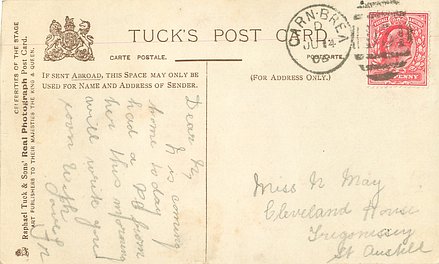 TUCK'S POST CARD.
CARTE POSTALE.
POSTCARTE.
IF SENT ABROAD, THIS SPACE MAY ONLY BE
USED FOR NAME AND ADDRESS OF SENDER.
(FOR ADDRESS ONLY.)
CELEBRITIES OF THE STAGE
Raphael Tuck & Sons' Real Photograph Post Card.
ART PUBLISHERS TO THEIR MAJESTIES THE KING & QUEEN.
CARN-BREA
PENNY
Dear
is coming
home today
had a from
her this morning
will write you
soon With
love
Miss N May
Cleveland House
Tregonissey
St Austell